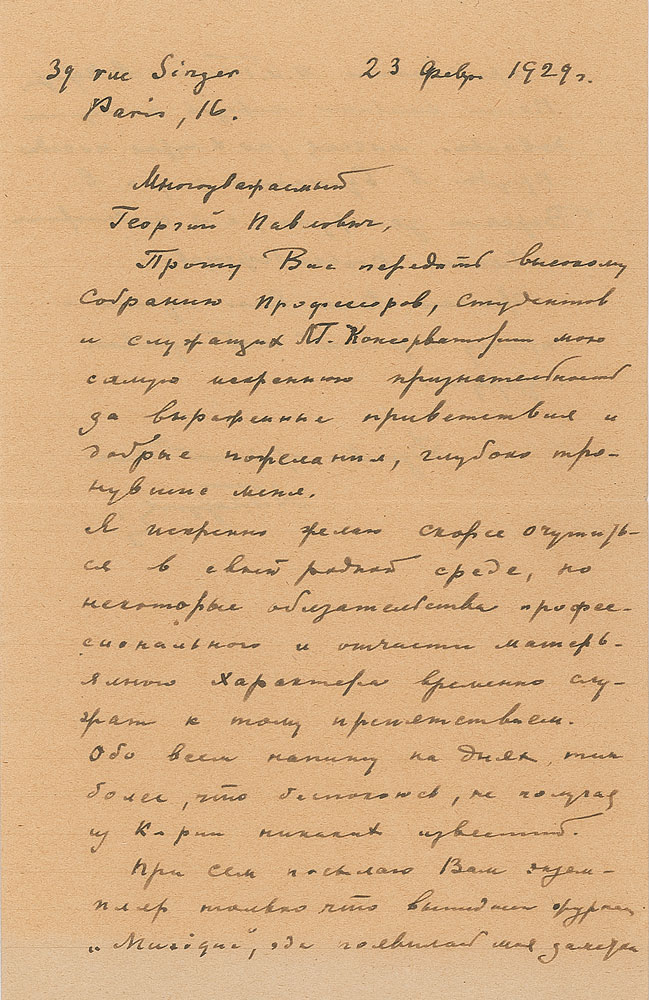 39 rue Singer 23 февр 1929 г.
Paris, 16.
Многоуважаемый
Георгий Павлович,
Прошу Вас передать высокому
собранию профессоров, студентов
и служащих Т. Консерватории мою
самую искреннюю признательность
за выраженные приветствия и
добрые пожелания, глубоко тро-
нувшие меня.
Я искренно желаю скорее очутить-
ся в своей родной среде, но
некоторые обязательства профес-
сионального и отчасти матерь-
яльного характера временно слу-
жат к тому препятствием.
Обо всем напишу на днях, тем
более, что беспокоюсь, не получая
из К-рии никаких известий.
При сем посылаю Вам экзем-
пляр только что вышедшего журнала
„Musique“, где появилась моя заметка